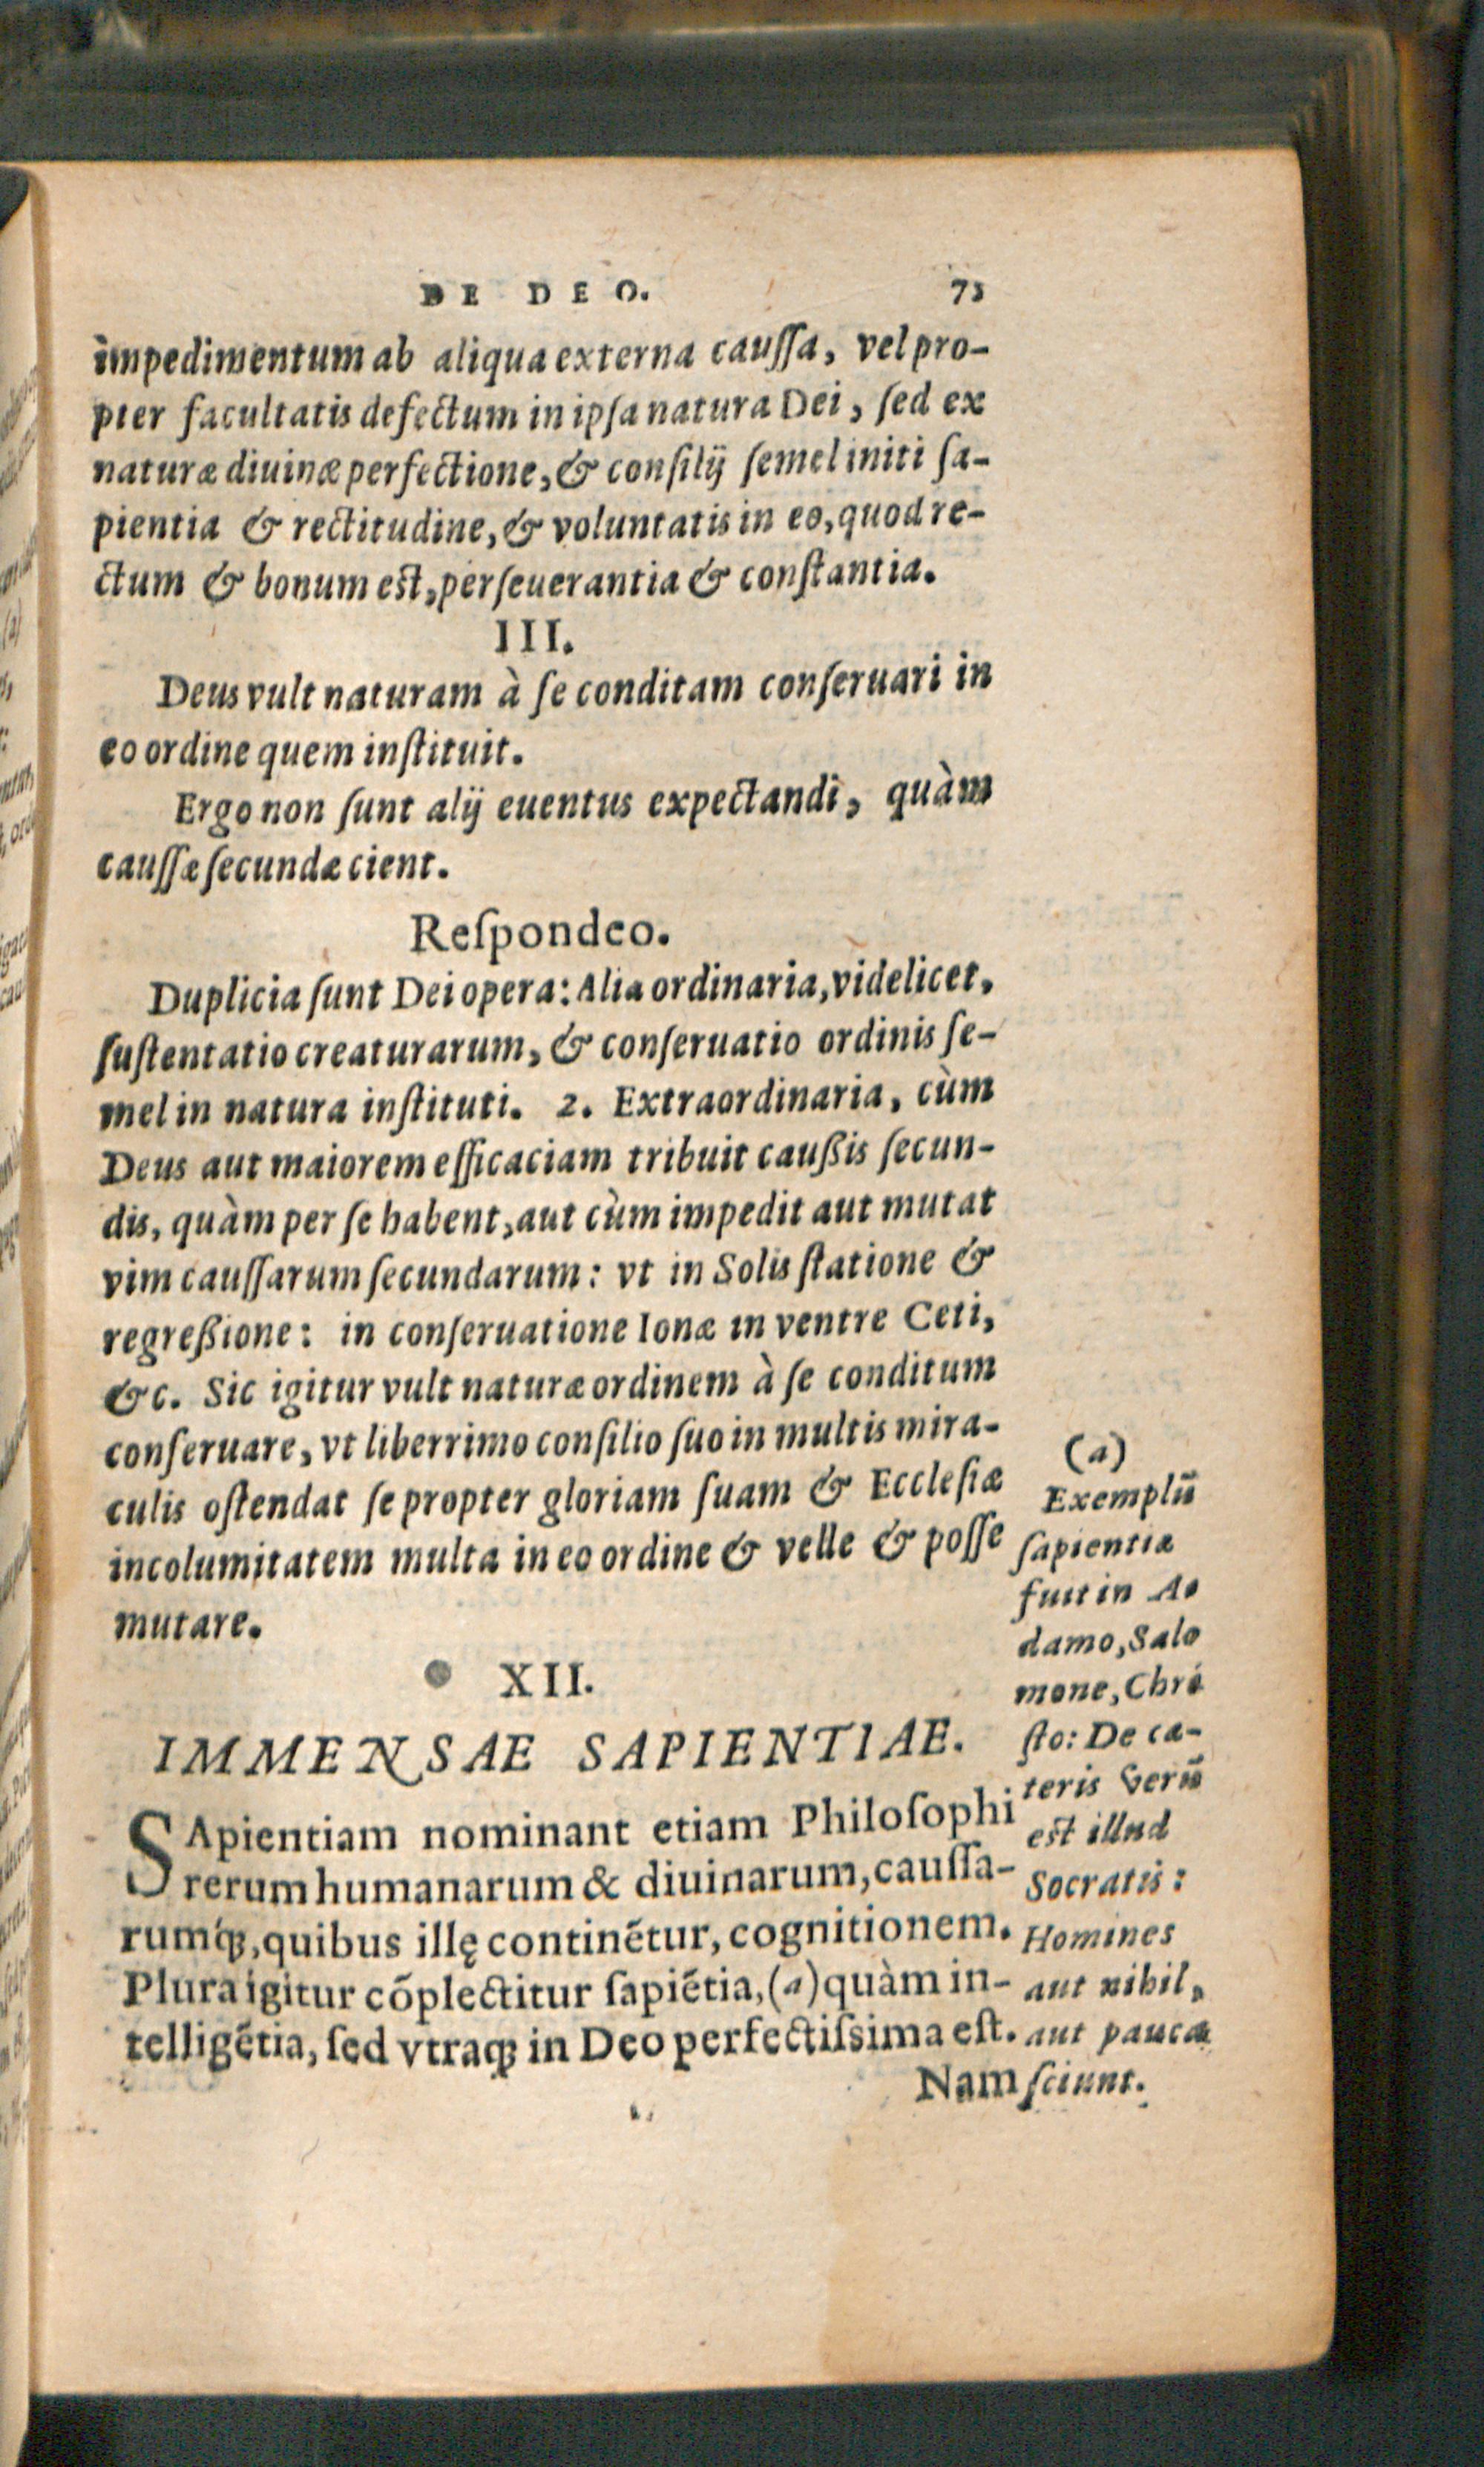 DE DEO. 73
impedimentum ab aliqua externa cauſſa, vel pro-
pter facultatis defectum in ipſa natura Dei, ſed ex
naturæ diuinæ perfectione, & conſilij ſemel initi ſa-
pientia & rectitudine, & voluntatis in eo, quod re-
ctum & bonum eſt, perſeuerantia & conſtantia.
III.
Deus vult naturam à ſe conditam conſeruari in
eo ordine quem inſtituit.
Ergo non ſunt alij euentus expectandi, quàm
cauſſæ ſecundæ cient.
Reſpondeo.
Duplicia ſunt Dei opera: Alia ordinaria, videlicet,
ſuſtentatio creaturarum, & conſeruatio ordinis ſe-
mel in natura inſtituti. 2. Extraordinaria, cùm
Deus aut maiorem efficaciam tribuit caußis ſecun-
dis, quàm per ſe habent, aut cùm impedit aut mutat
vim cauſſarum ſecundarum: vt in Solis ſtatione &
regreßione: in conſeruatione Ionæ in ventre Ceti,
&c. Sic igitur vult naturæ ordinem à ſe conditum
conſeruare, vt liberrimo conſilio ſuo in multis mira-
culis oſtendat ſe propter gloriam ſuam & Eccleſiæ
incolumitatem multa in eo ordine & velle & poſſe
mutare.
XII.
IMMENSAE SAPIENTIAE.
SApientiam nominant etiam Philoſophi
rerum humanarum & diuinarum, cauſſa-
rumq́;, quibus illę continētur, cognitionem.
Plura igitur cōplectitur ſapiētia, (a) quàm in-
telligētia, ſed vtraq; in Deo perfectiſsima eſt.
Nam
(a)
Exemplū
ſapientiæ
fuit in A-
damo, Salo
mone, Chri
ſto: De cæ-
teris verū
eſt illud
Socratis:
Homines
aut nihil,
aut pauca
ſciunt.